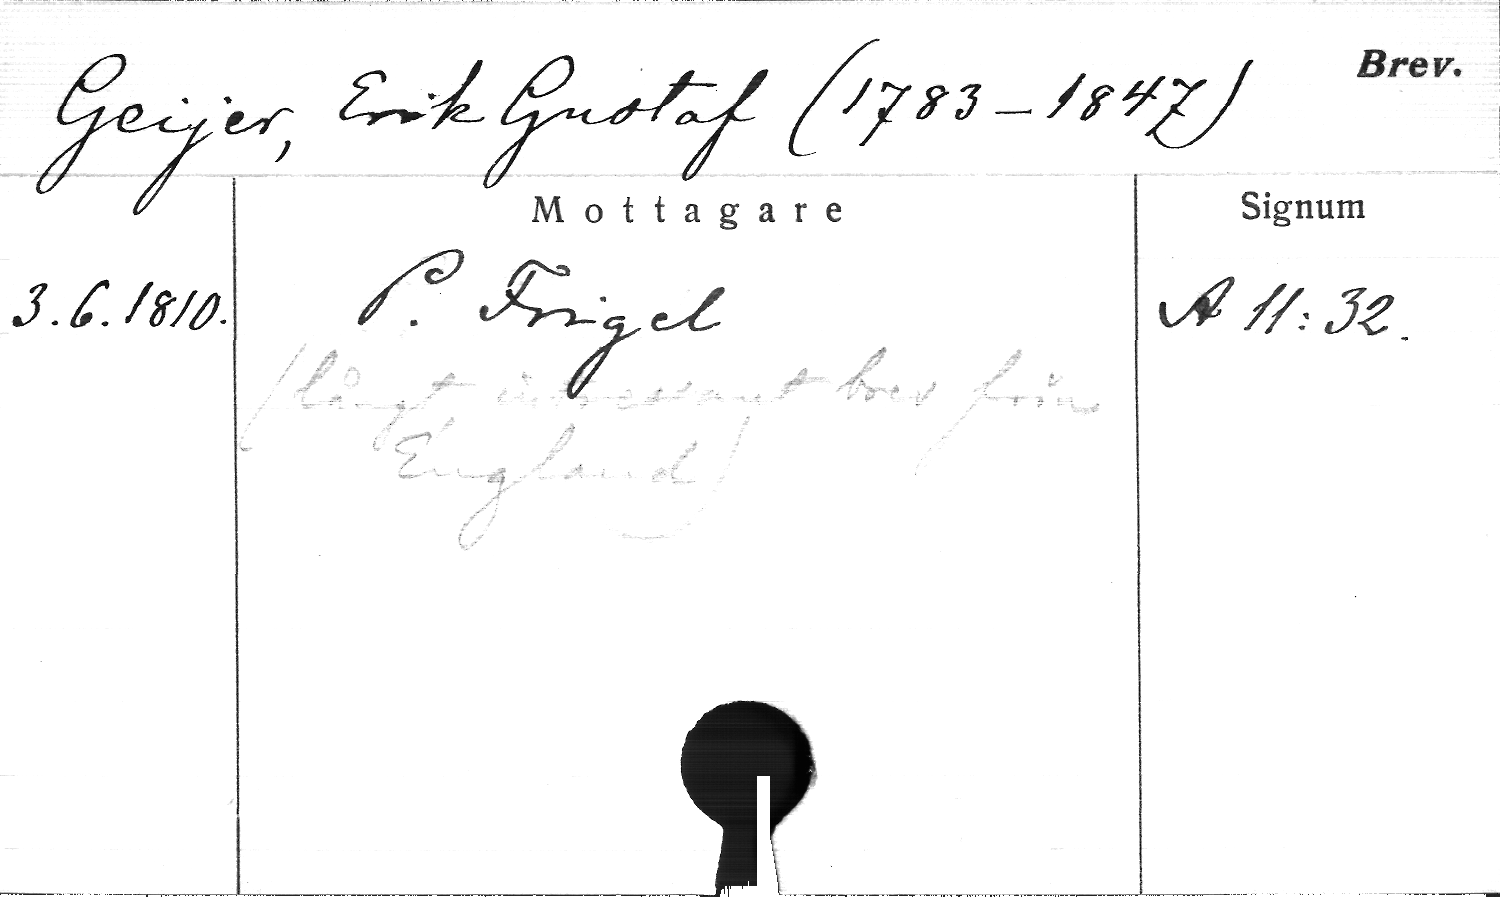 Geijer, Erik Gustaf (1783–1847) Brev.
Mottagare Signum
3.6.1810. P. Frigel A 11:32.
(långt intressant brev från
England)